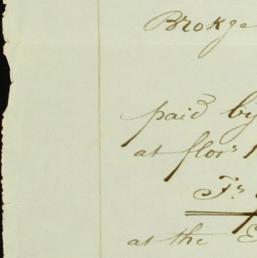 Brokge
paid by
at flors
Fs
at the